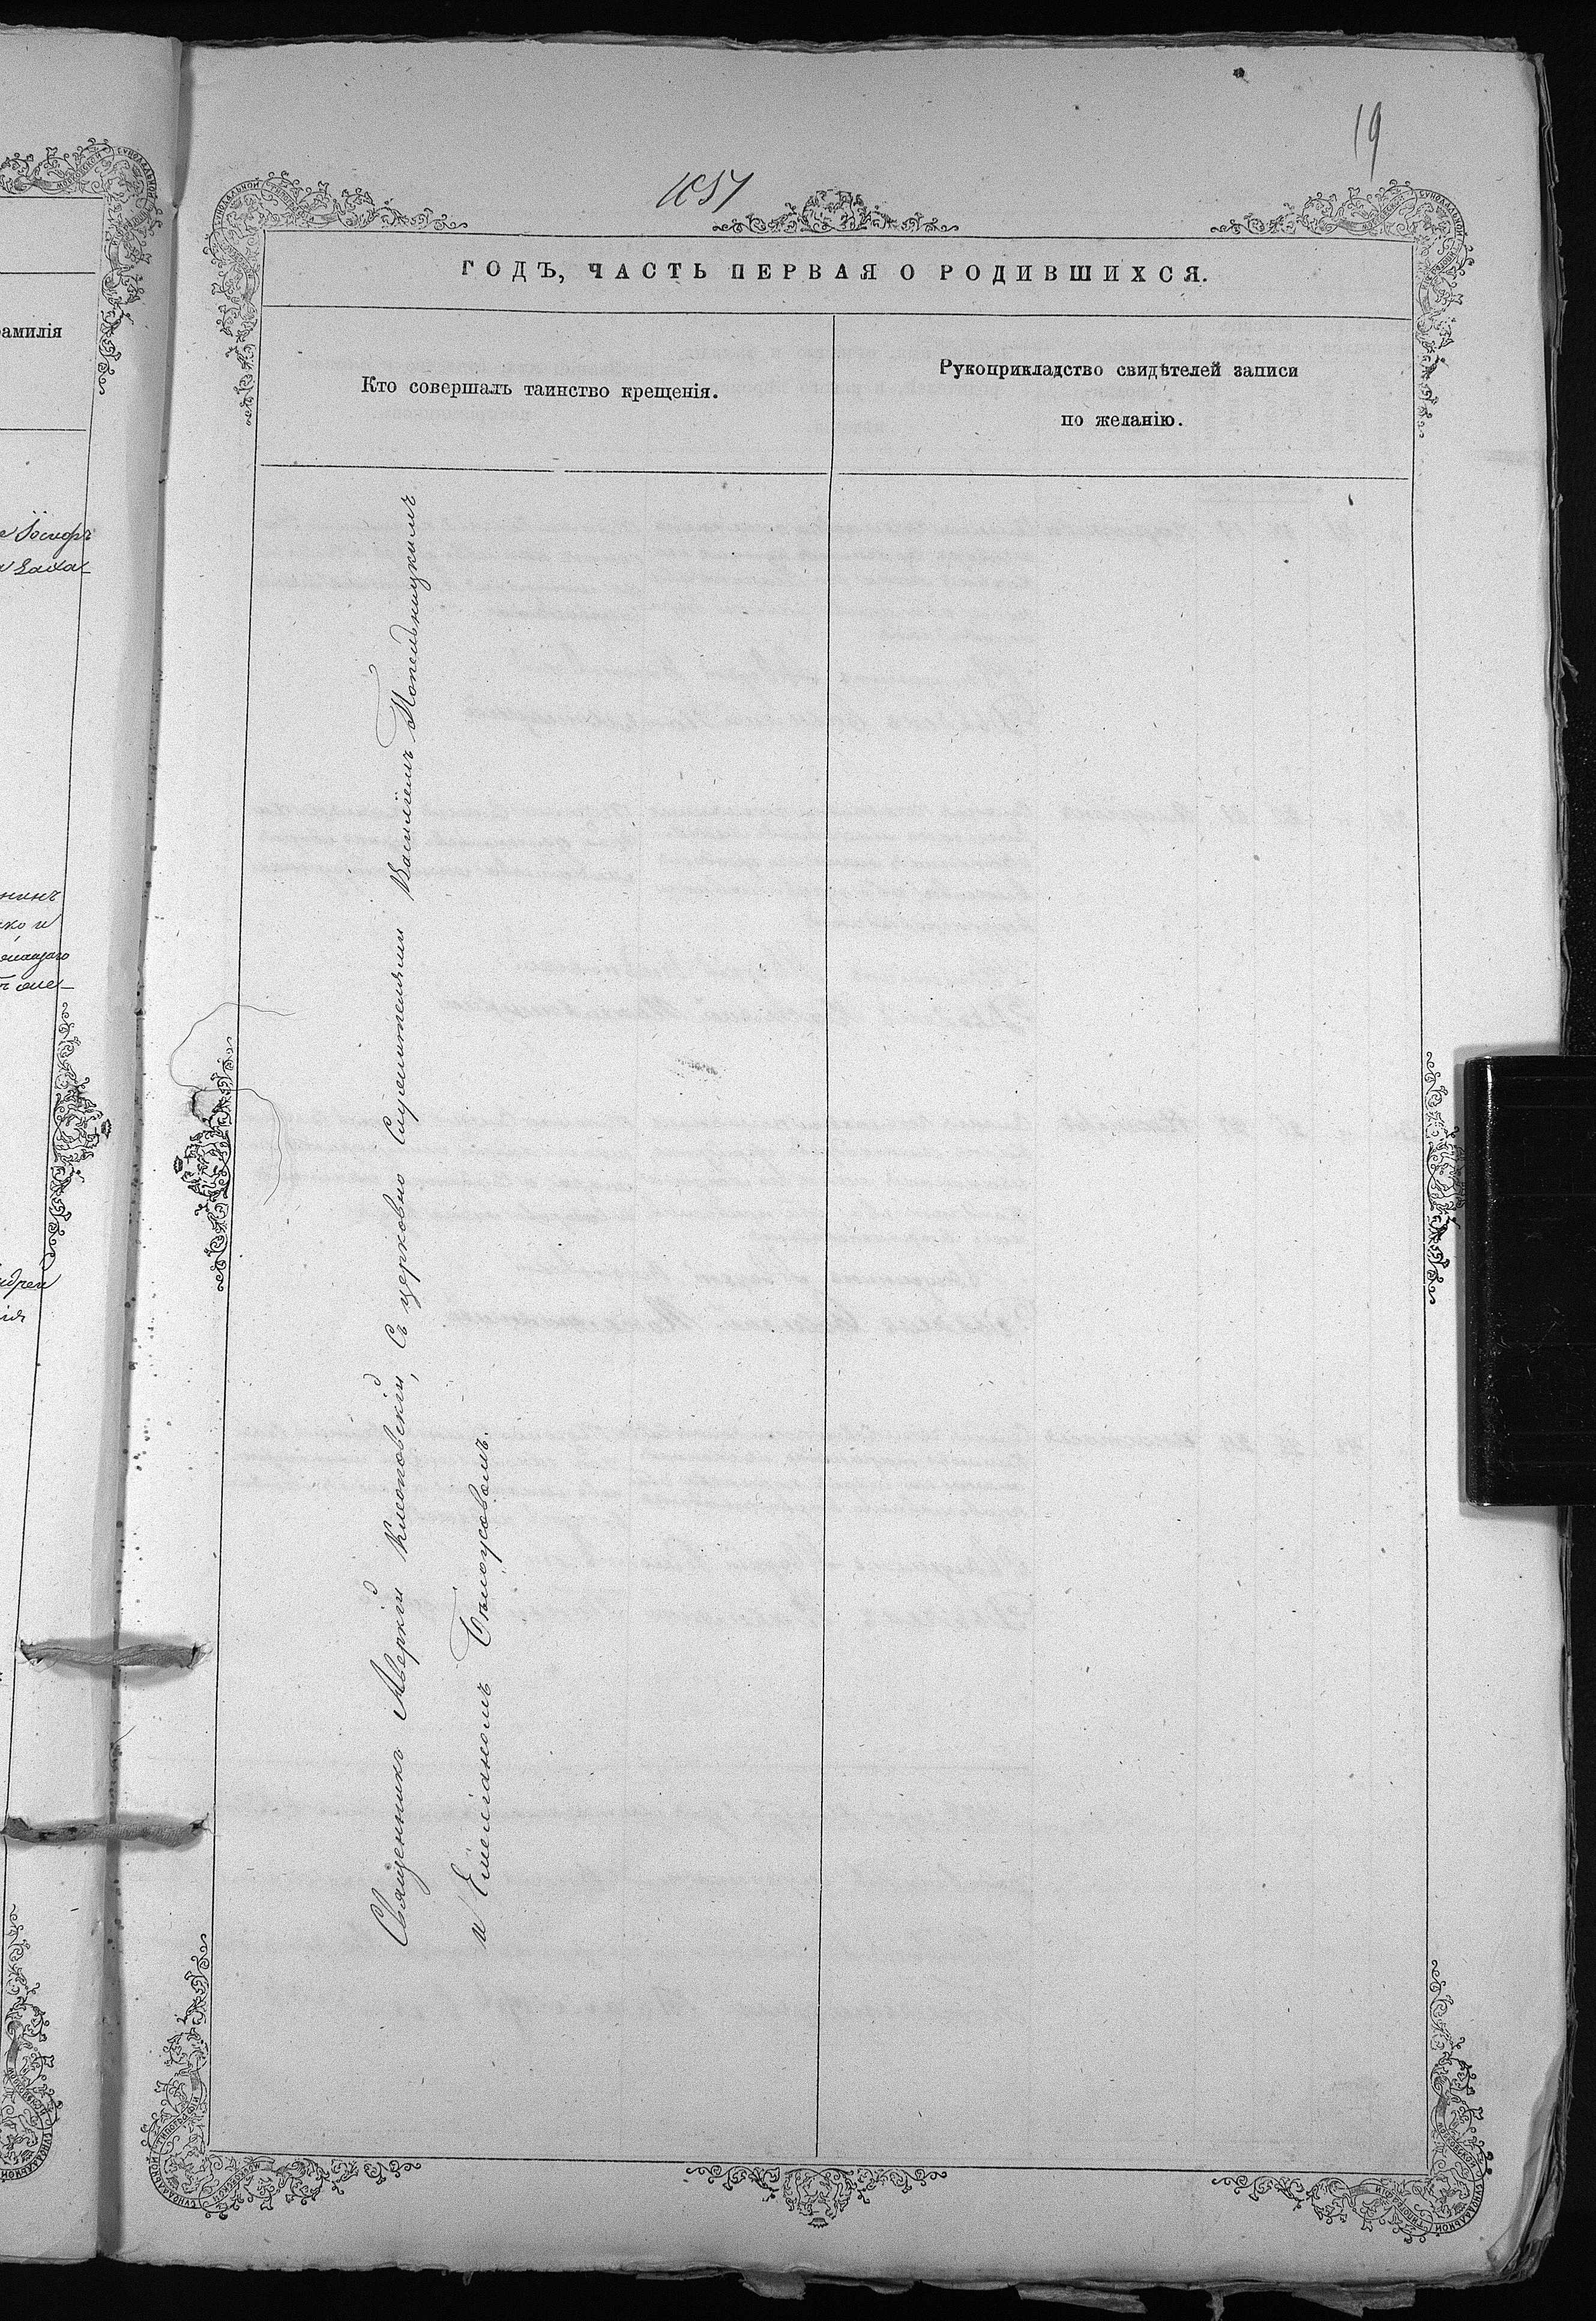 19
1857
ГОДЪ, ЧАСТЬ ПЕРВАЯ О РОДИВШИХСЯ.
Кто совершалъ таинство крещенія.
Рукоприкладство свидѣтелей записи
по желанію.
Священникъ Аверкій Клеоповскій, съ церковно служителями Василіемъ Попельницкимъ
и Емеліаномъ Бѣлоусовомъ.
амилія
нинъ
ко и